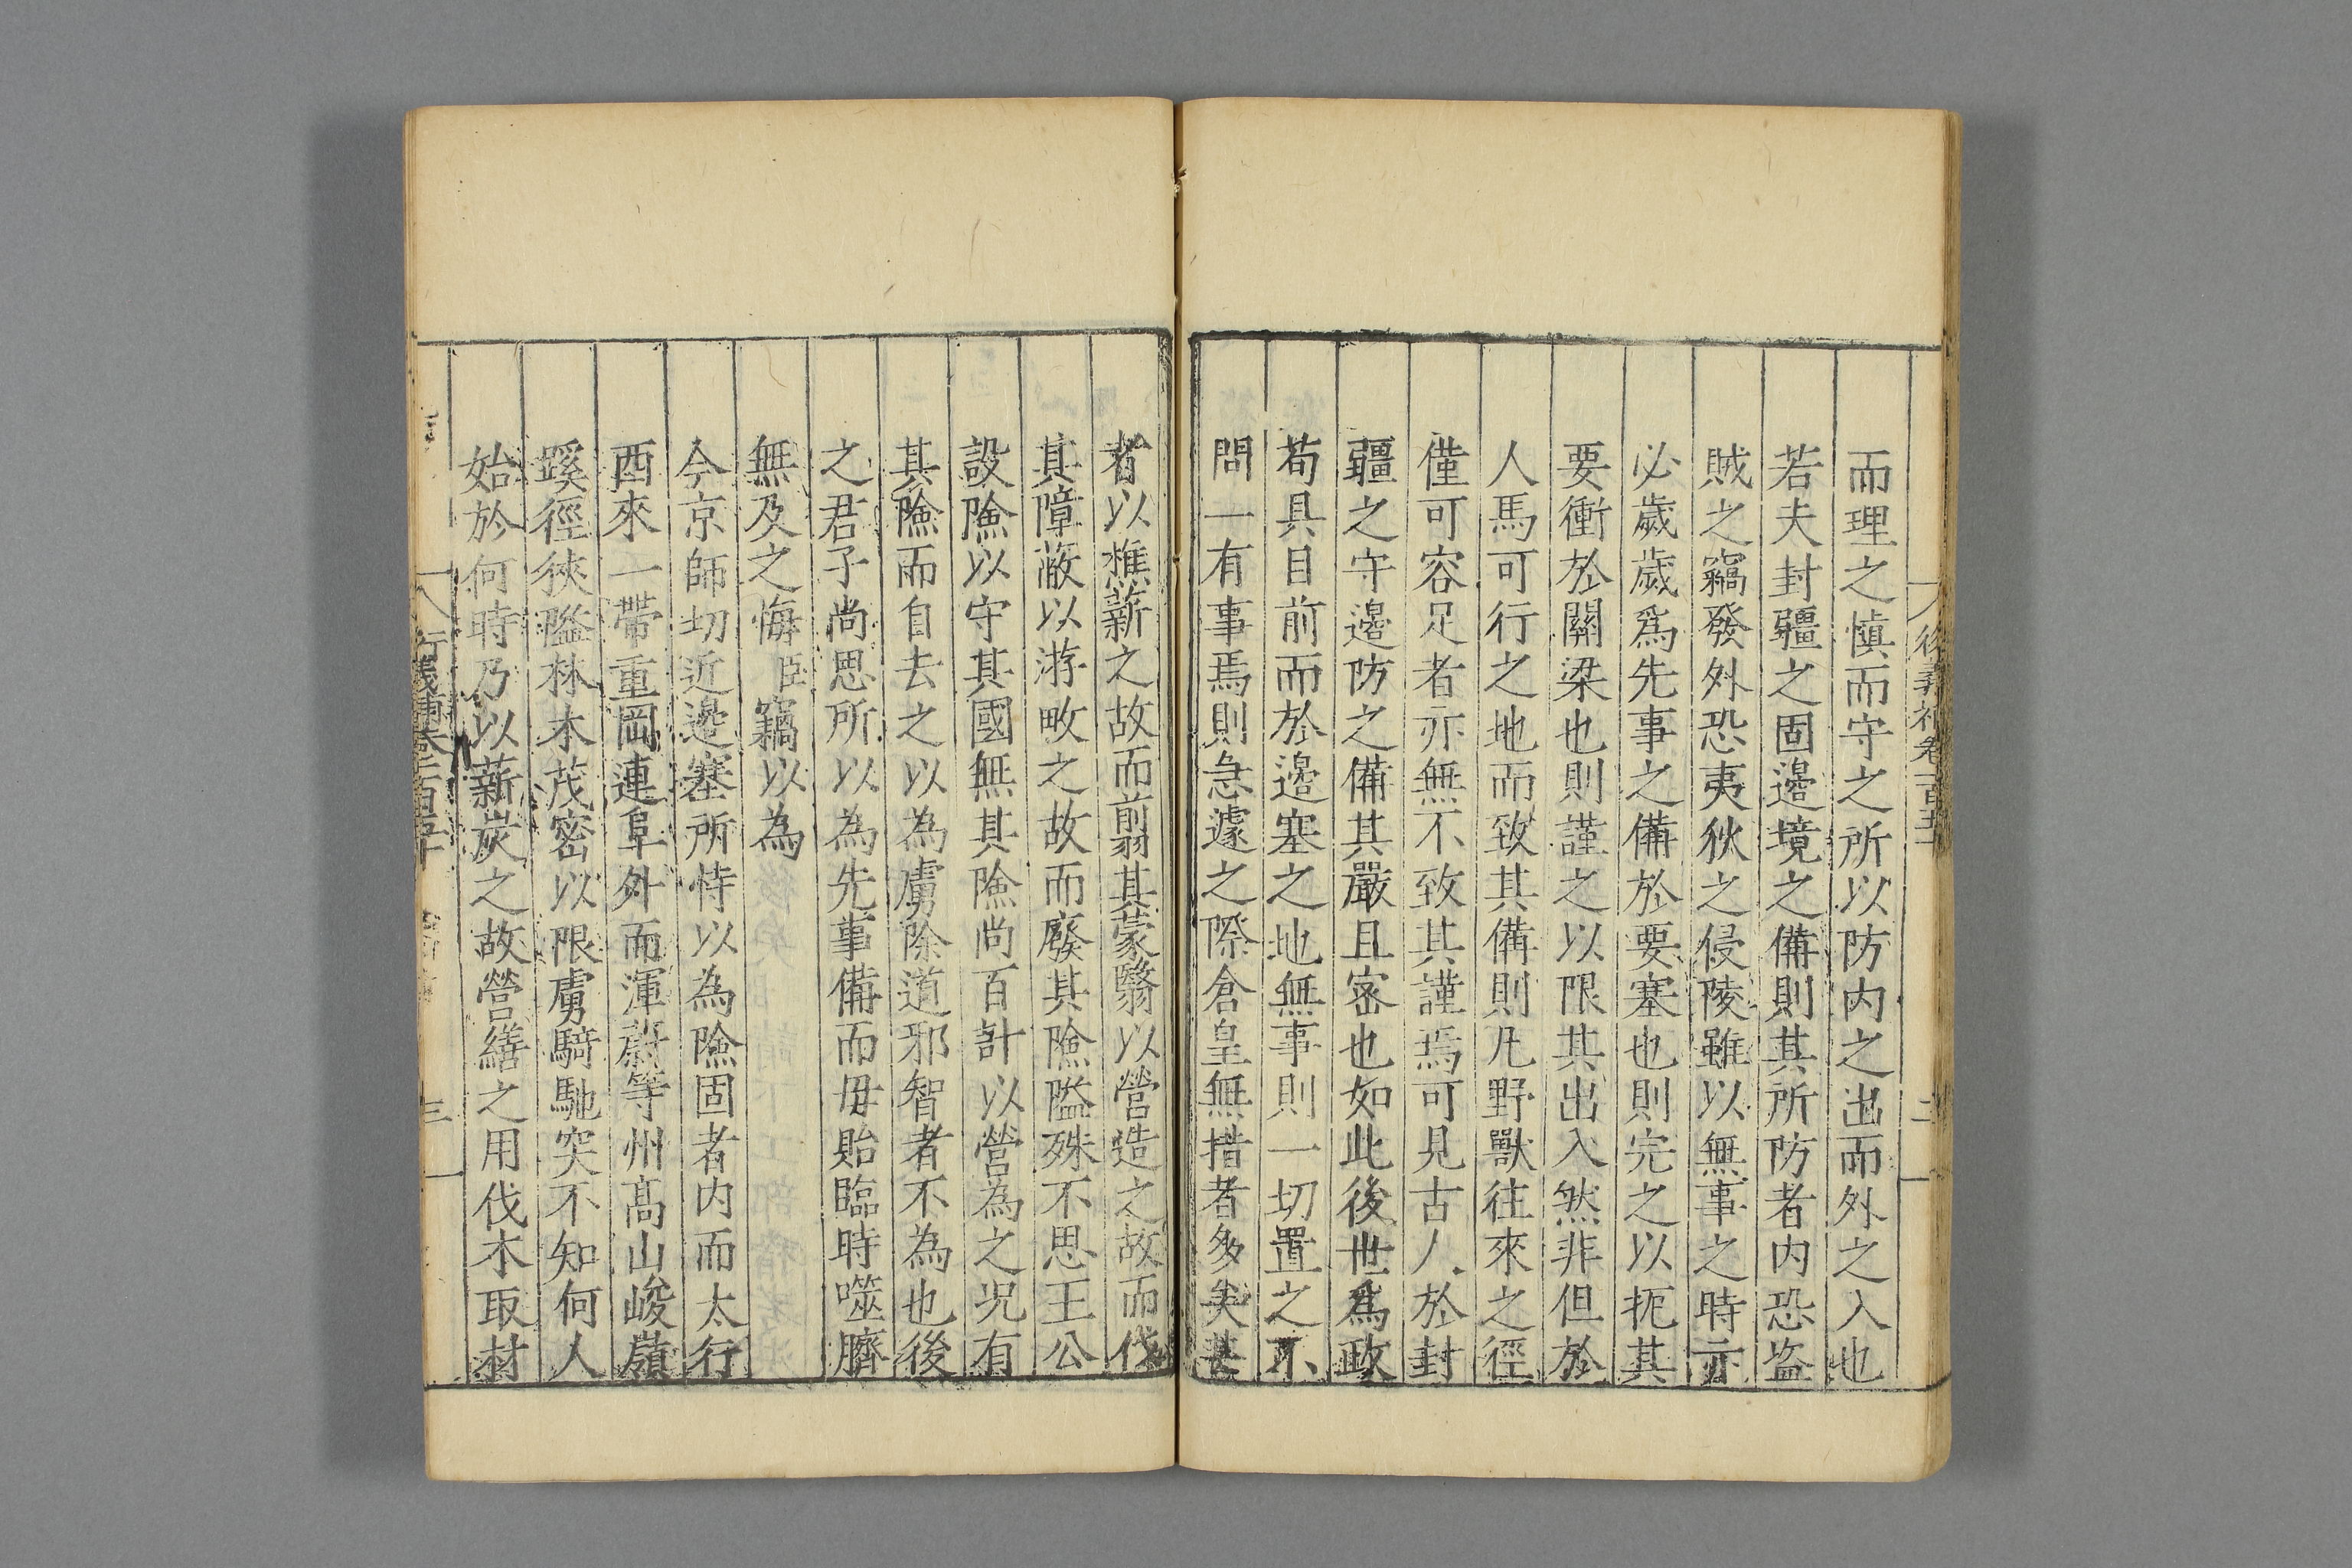 而理之慎而守之所以防内之出而外之入也
若夫封疆之固邊境之備則其所防者内恐盗
賊之竊發外恐夷狄之侵陵雖以無事之時亦
必歲歲爲先事之備於要塞也則完之以扼其
要衝於關梁也則謹之以限其出入然非但於
人馬可行之地而致其備則凡野獸往來之徑
僅可容足者亦無不致其謹焉可見古人於封
疆之守邊防之備其嚴且密也如此後世爲政
苟具目前而於邊塞之地無事則一切置之不
問一有事焉則急遽之際倉皇無措者多矣甚
者以樵薪之故而翦其蒙翳以營造之故而伐
其障蔽以游畋之故而廢其險隘殊不思王公
設險以守其國無其險尚百計以營為之况有
其險而自去之以為虜除道邪智者不為也後
之君子尚思所以為先事備而毋貽臨時噬臍
無及之悔臣竊以為
今京師切近邊塞所恃以為險固者内而太行
西來一帶重岡連阜外而渾蔚等州高山峻嶺
蹊徑狹隘林木茂密以限虜騎馳突不知何人
始於何時乃以薪炭之故營繕之用伐木取材